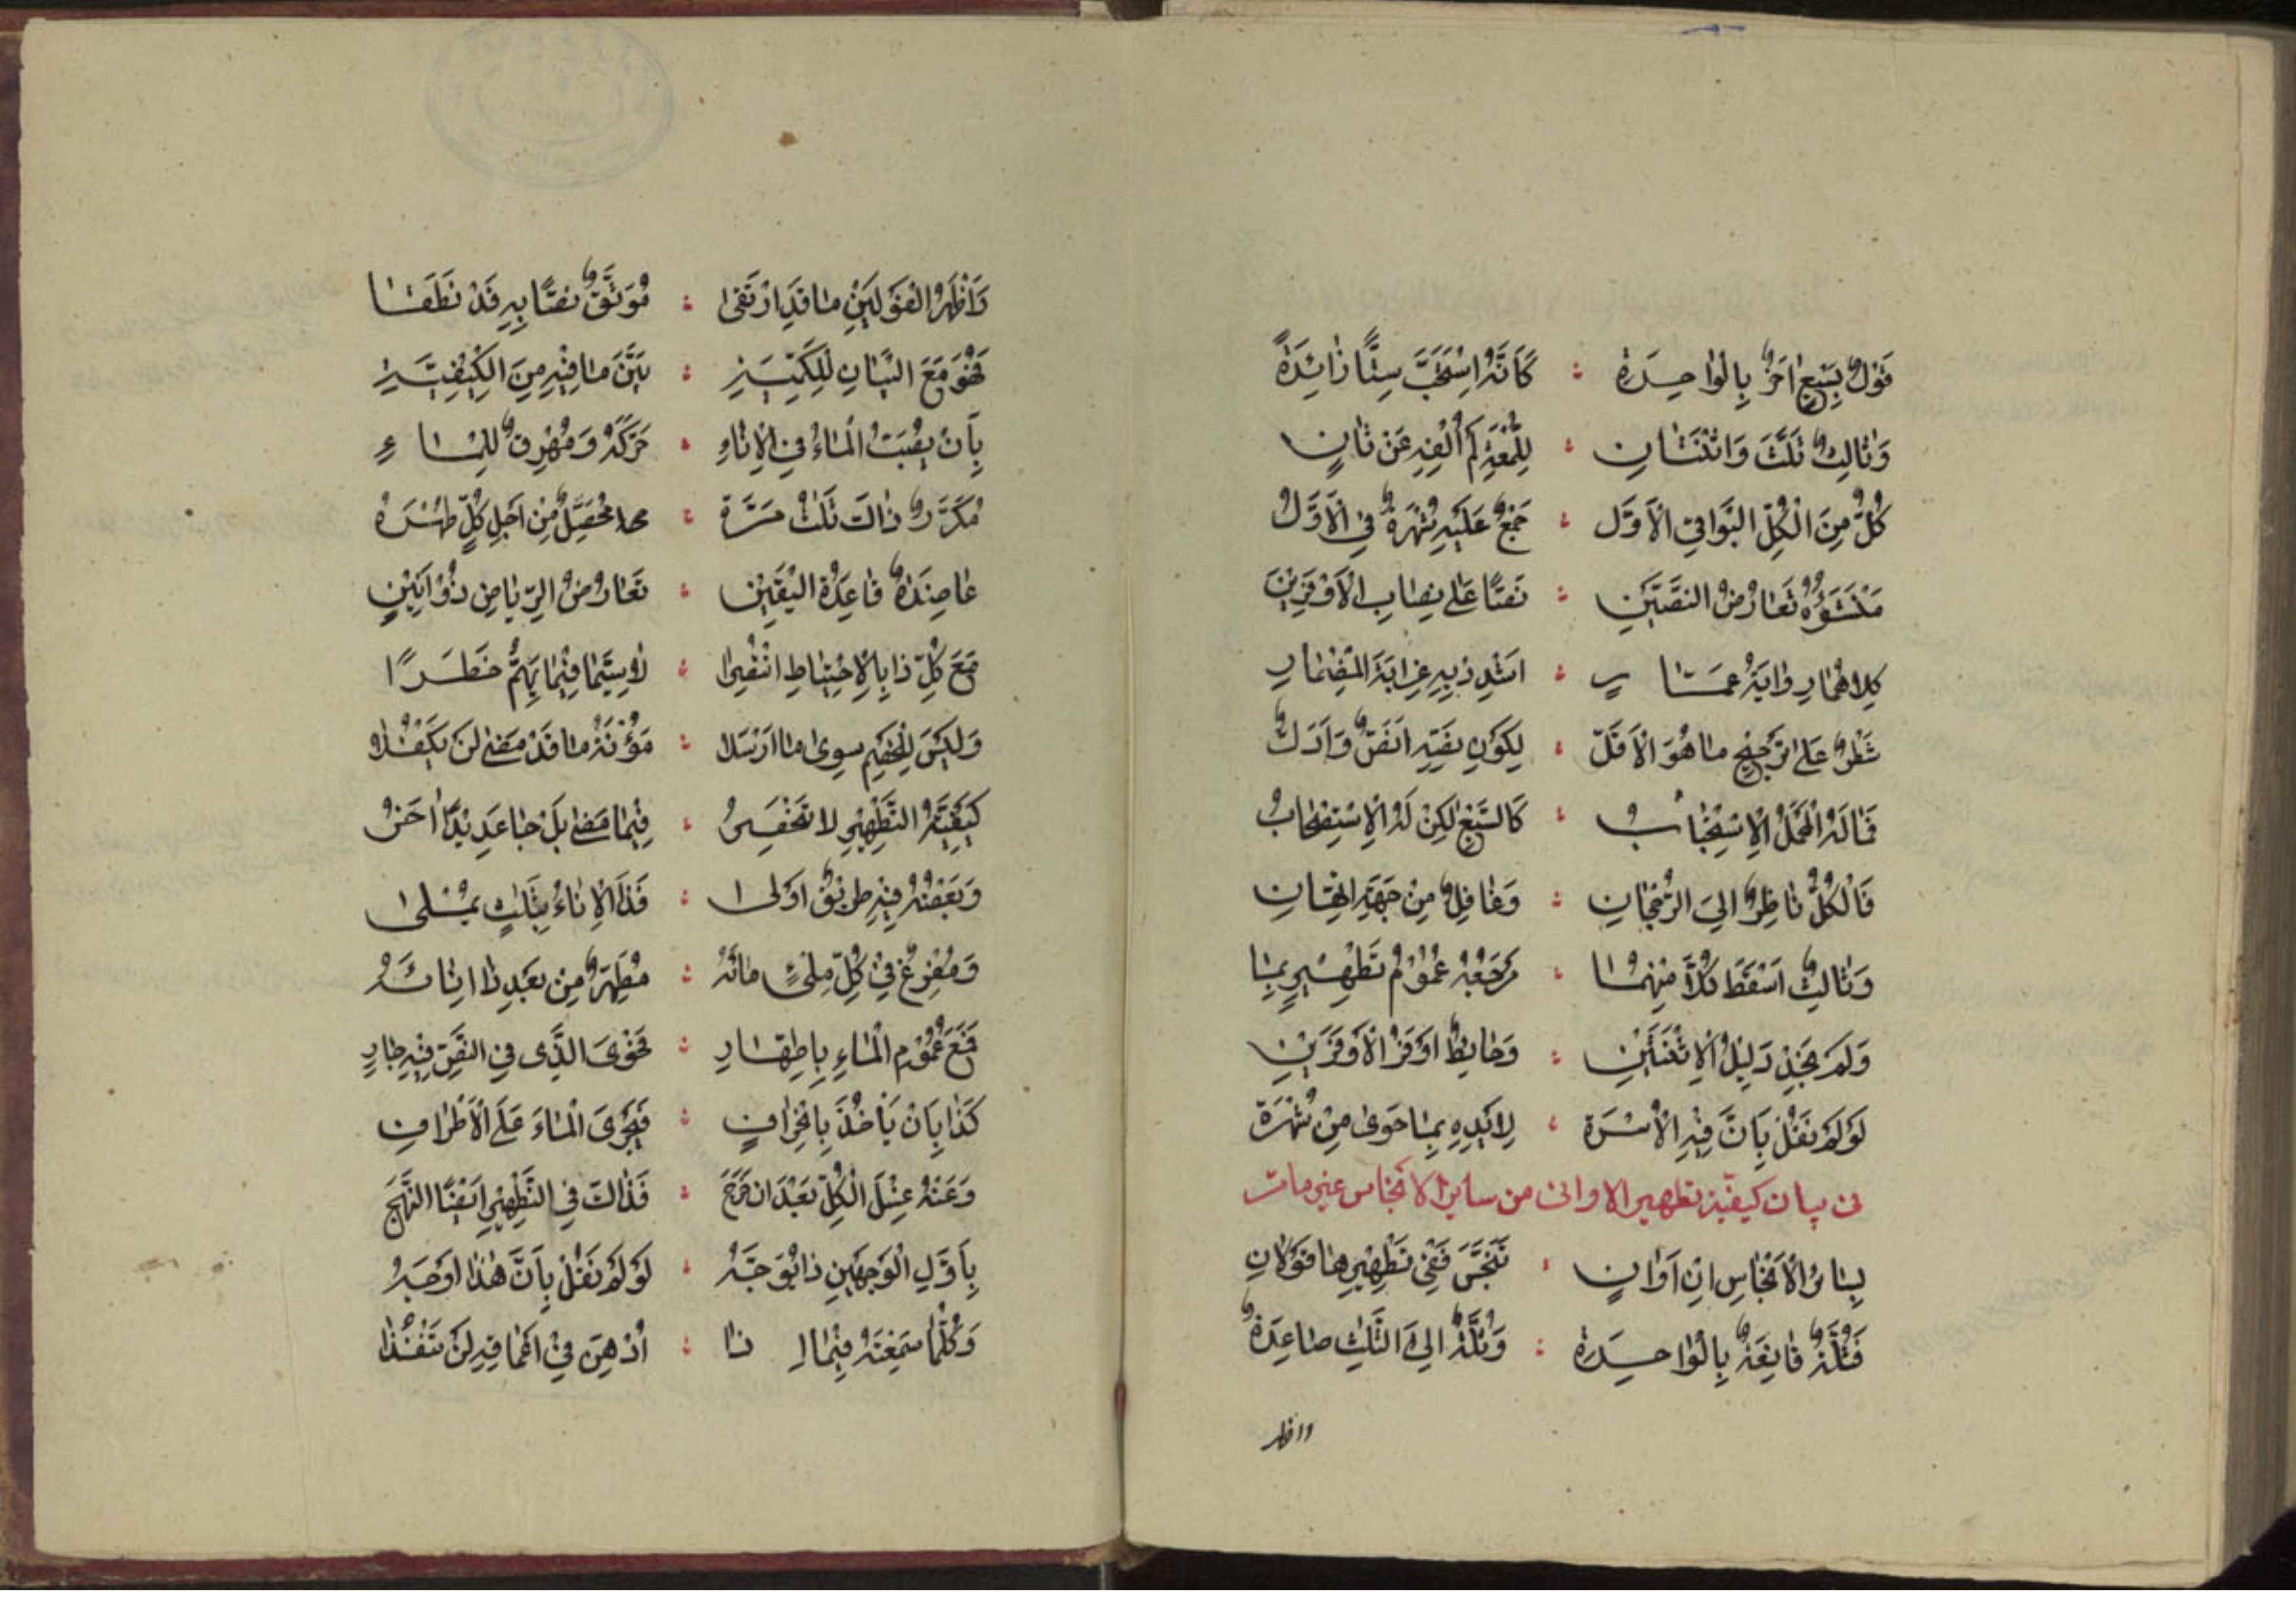 قَوْلٌ بِسَبْعٍ آخَرٌ بِالْوَاحِدَةِ : كَأَنَّهُ اسْتَحَبَّ سِتًّا زَائِدَةً
وَثَالِثٌ ثَلَّثَ وَاثْنَتَانِ : لِلْمُفِيدِ لَمْ أُلْفِهِ عَنْ ثَانٍ
كُلٌّ مِنَ الْكُلِّ الْبَوَاقِي الْأَوَّل : جَمْعٌ عَلَيْهِ شُهْرَةٌ فِي الْأَوَّلُ
مَنْشَؤُهُ تَعَارُضُ النَّصَّيْنِ : نَصًّا عَلَى نِصَابِ الْأَوْفَرَيْنِ
كِلَاهُمَا رِوَايَةُ عَمَّارٍ :
شَطْرٌ عَلَى تَرْجِيحِ مَا هُوَ الْأَقَلّ : لِكَوْنِ نَصِّهِ أَنَصُّ وَأَدَلُّ
فَمَا لَهُ الْمَحْمَلُ الْإِسْتِحْبَابُ : كَالسَّبْعِ لٰكِنْ لَهُ الْإِسْتِصْحَابُ
فَالْكُلُّ نَاظِرٌ إِلَى الرُّجْحَانِ : وَغَافِلٌ مِنْ جِهَةِ
وَثَالِثٌ أَسْقَطَ كُلًّا مِنْهُمَا : مَرْجَعُهُ عُمُومُ تَطْهِيرٍ بِمَا
وَلَمْ نَجِدْ دَلِيلَ الْإِثْنَتَيْنِ : وَحَائِطٌ أَوْفَرُ الْأَوْفَرَيْنِ
لَوْ لَمْ نَقُلْ بِأَنَّ فِيهِ الْأُسْرَةَ : لِأَيْدِهِ بِمَا حَوَى مِنْ شُهْرَةٍ
فى بيان كيفية تطهير الاوانى من ساير الانجاس غير مامر
بِسَائِرِ الْأَنْجَاسِ إِنْ أَوَانٍ : تَنَجَّسَ فَفِي تَطْهِيرِهَا قَوْلَانِ
فَثُلَّةٌ قَانِعَةٌ بِالْوَاحِدَةِ : وَثُلَّةٌ إِلَى الثَّلَاثِ صَاعِدَةٌ
واظهر
وَأَظْهَرُ الْقَوْلَيْنِ مَا قَدِ ارْتَقَى : مُوَثَّقٌ نَصًّا بِهِ قَدْ نَطَقَا
فَهُوَ مَعَ الْبَيَانِ لِلْكَمِّيَّةِ : بَيَّنَ مَا فِيهِ مِنَ الْكَيْفِيَّةِ
بِأَنْ يُصَبَّ الْمَاءُ فِي الْإِنَاءِ : حَرَّكَهُ وَمُهْرِقٌ لِلْمَاءِ
مُكَرَّرٌ ذَاكَ ثَلَاثَ مَرَّةٍ : مُحَصِّلٌ مِنْ أَجْلِ كُلٍّ طُهْرَهُ
عَاضِدَةٌ قَاعِدَةُ الْيَقِينِ : تَعَارُضُ
مَعَ كُلِّ ذَا بِالْإِحْتِيَاطِ : لَا سِيَّمَا فِيمَا يَهُمُّ خَطَرًا
وَلَيْسَ لِلْخَصْمِ سِوَى مَا أَرْسَلَا : مَؤُنَةُ مَا قَدْ مَضَى لَنْ يَكْفُلَا
كَيْفِيَّةُ التَّطْهِيرِ لَا تَنْحَصِرُ : فِيمَا مَضَى بَلْ جَا عَدِيدًا أُخَرُ
وَبَعْضُهُ فِيهِ طَرِيقٌ أَوْلَى : فَذَا الْإِنَاءُ بِثَلَاثٍ يُمْلَى
وَمُفْرِغٌ فِي كُلِّ مِلْئٍ مَائَهُ : مُطَهِّرٌ مِنْ بَعْدِ ذَا إِنَائَهُ
فَمَعَ عُمُومِ الْمَاءِ بِإِطْهَارِ : فَحْوَى الَّذِي فِي النَّصِّ فِيهِ جَارِ
كَذَا بِأَنْ يَأْخُذَ بِانْحِرَافٍ : فَيَجْرِيَ الْمَاءَ عَلَى الْأَطْرَافِ
وَعَنْهُ غِسْلَ الْكُلِّ بَعْدَ أَنْ خَرَجَ : فَذَاكَ فِي التَّطْهِيرِ أَيْضًا النَّهَجُ
بِأَوَّلِ الْوَجْهَيْنِ ذَا تَوَجُّهُ : لَوْ لَمْ نَقُلْ بِأَنَّ هٰذَا أَوْجَهُ
وَكُلُّمَا سَمِعْتَهُ فِيمَا إِذَا : أَدْهَنَ فِي أَعْمَاقِهِ لَنْ تَنْفُذَا